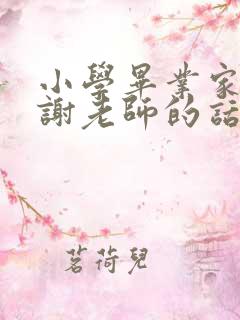 小學畢業家
謝老師的話
茗荷兒